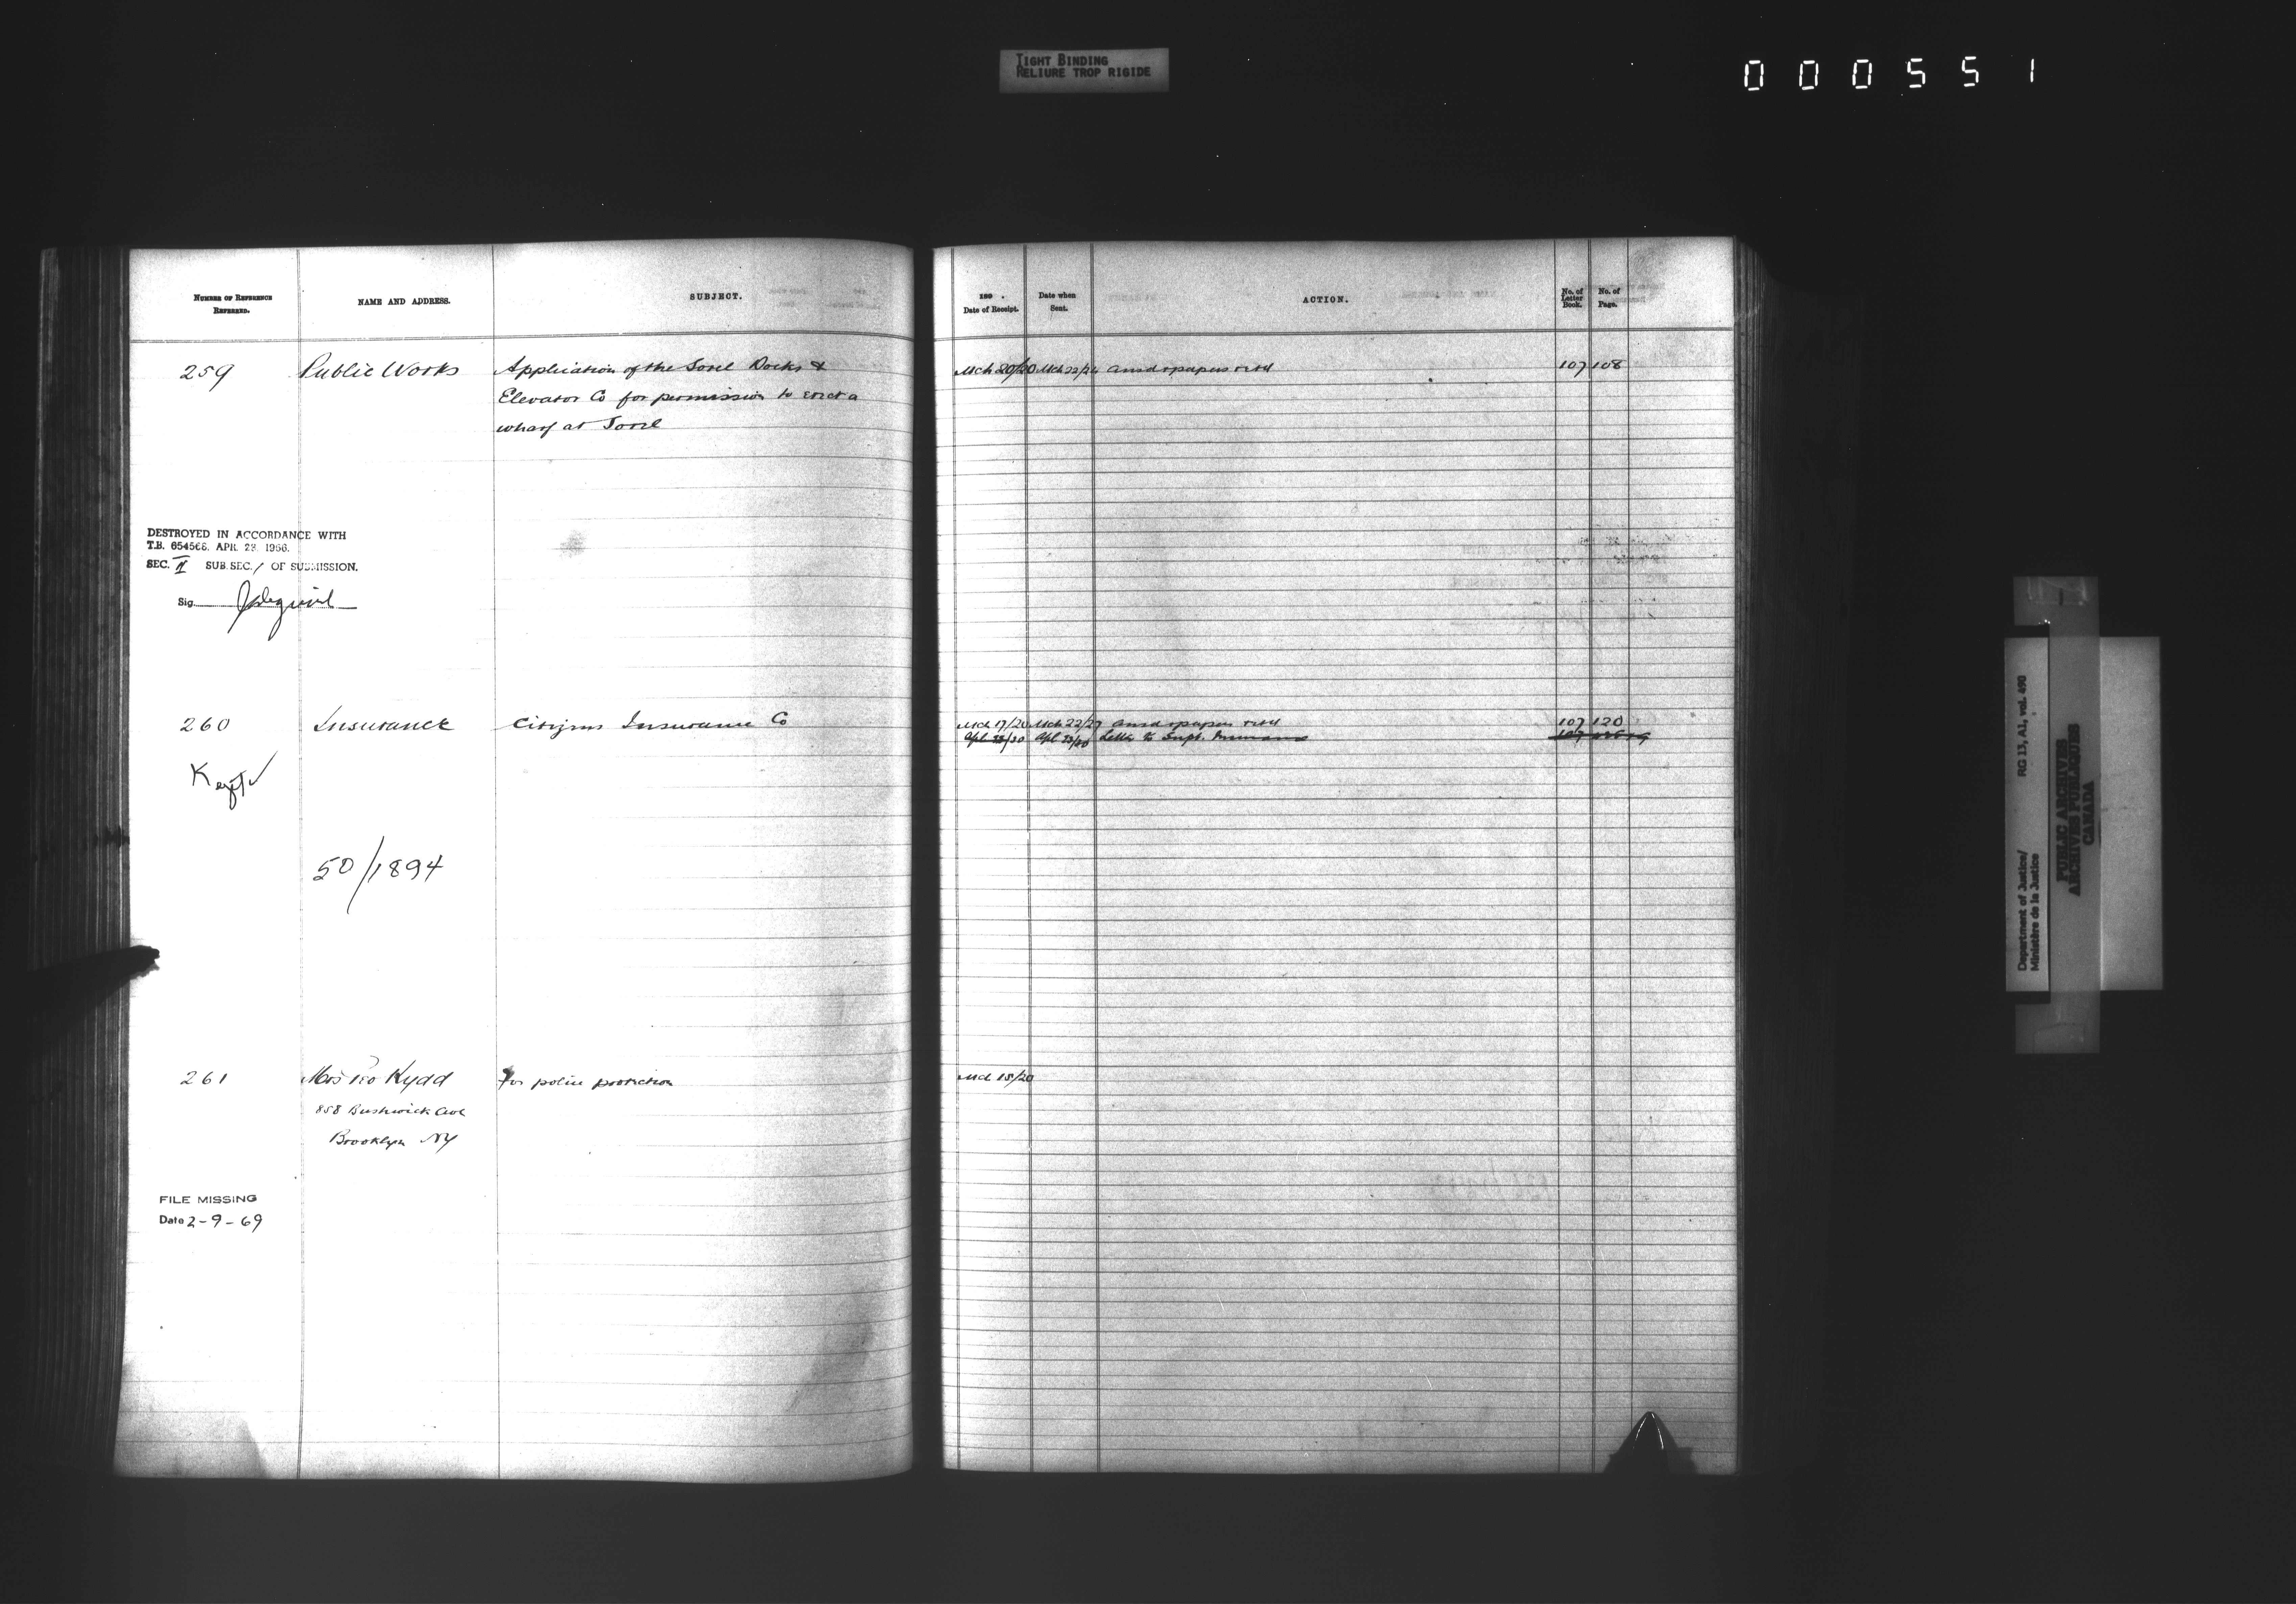 TIGHT BINDING
RELIURE TROP RIGIDE
000551
NUMBER OF REFERENCE REFERRED.
NAME AND ADDRESS.
SUBJECT.
189 .
Date of Receipt.
Date when Sent.
ACTION.
No. of Letter Book.
No. of Page.
259 Public Works Application of the Sorel Docks & Mch 20/20 Mch 22/24 Ansd & papers retd 107 108
Elevator Co for permission to erect a
wharf at Sorel
DESTROYED IN ACCORDANCE WITH
T.B. 654568, APR. 28, 1966.
SEC. II SUB.SEC. / OF SUBMISSION.
Sig.
260 Insurance Citizens Insurance Co Mch 17/20 Mch 22/27 Ansd & papers retd 107 120
Apl 23/20 Letter to Supt. Insurance 107
Kept ✓
50/1894
261 Mrs Kydd For police protection Mch 15/20
858 Bushwick Ave
Brooklyn NY
FILE MISSING
Date 2-9-69
Department of Justice/
Ministère de la Justice
RG 13, A1, vol. 490
PUBLIC ARCHIVES
ARCHIVES PUBLIQUES
CANADA